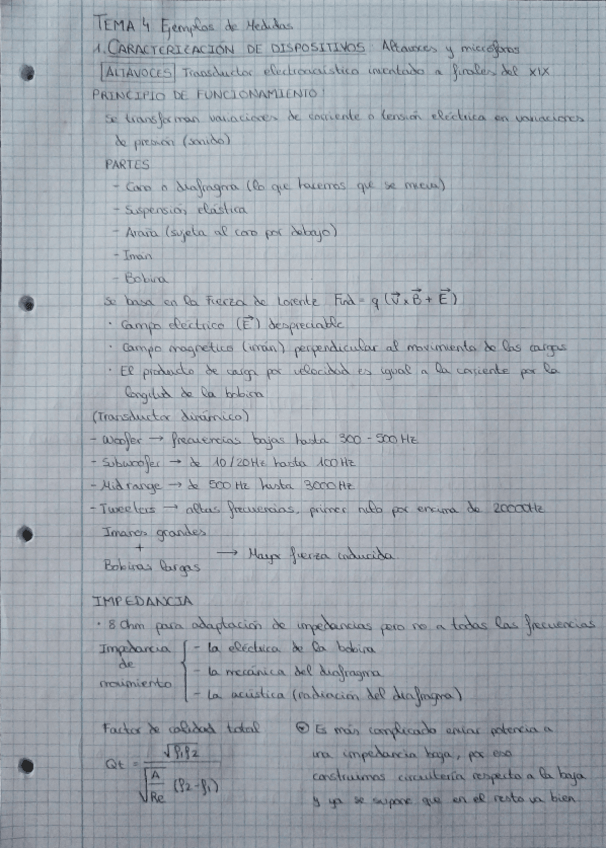 TEMA 4 Ejemplos de Medidas
1. CARACTERIZACIÓN DE DISPOSITIVOS Altavoces y micrófonos
ALTAVOCES Transductor electroacústico inventado a finales del XIX
PRINCIPIO DE FUNCIONAMIENTO:
Se transforman variaciones de corriente o tensión eléctrica en variaciones
de presión (sonido)
PARTES
- Cono o diafragma (lo que hacemos que se mueva)
- Suspensión elástica
- Araña (sujeta al cono por debajo)
- Imán
- Bobina
Se basa en la Fuerza de Lorentz Find = q (V⃗ x B⃗ + E⃗)
· Campo eléctrico (E⃗) despreciable
· Campo magnético (imán) perpendicular al movimiento de las cargas
· El producto de carga por velocidad es igual a la corriente por la
longitud de la bobina
(Transductor dinámico)
- Woofer → frecuencias bajas hasta 300 - 500 Hz
- Subwoofer → de 10/20Hz hasta 100Hz
- Mid range → de 500 Hz hasta 3000Hz
- Tweeters → altas frecuencias, primer nulo por encima de 20000Hz
Imanes grandes
+ → Mayor fuerza inducida
Bobinas largas
IMPEDANCIA
· 8 Ohm para adaptación de impedancias pero no a todas las frecuencias
Impedancia de movimiento { - La eléctrica de la bobina
- La mecánica del diafragma
- La acústica (radiación del diafragma)
Factor de calidad total
Qt = √f1f2 / (√(A/Re) (f2-f1))
Es más complicado enviar potencia a
una impedancia baja, por eso
construimos circuitería respecto a la baja
y ya se supone que en el resto va bien